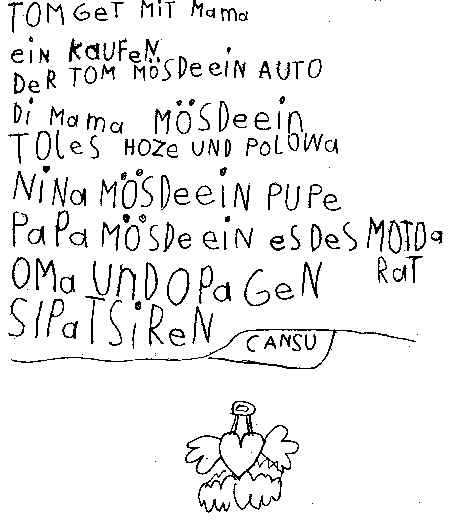 TOM GeT MiT Mama
eiN KaUFeN
DeR TOM MÖSDeeiN AUTO
Di Mama MÖSDeein
TOleS HOZe UND POLOWa
NiNa MÖSDeeiN PUPe
PaPa MÖSDe eiN esDes MOTDa
RaT
OMa UNDOPa GeN
SIPaTSiReN
CANSU